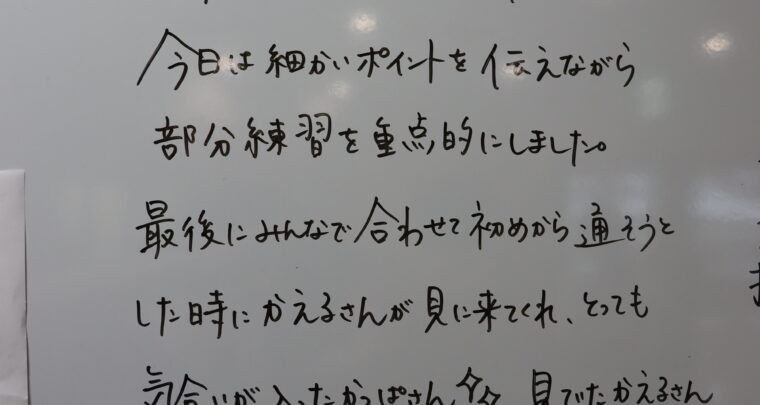 今日は細かいポイントを伝えながら
部分練習を重点的にしました。
最後にみんなで合わせて初めから通そうと
した時にかえるさんが見に来てくれ、とっても
気合いが入ったかっぱさん✨ 見てたかえるさん